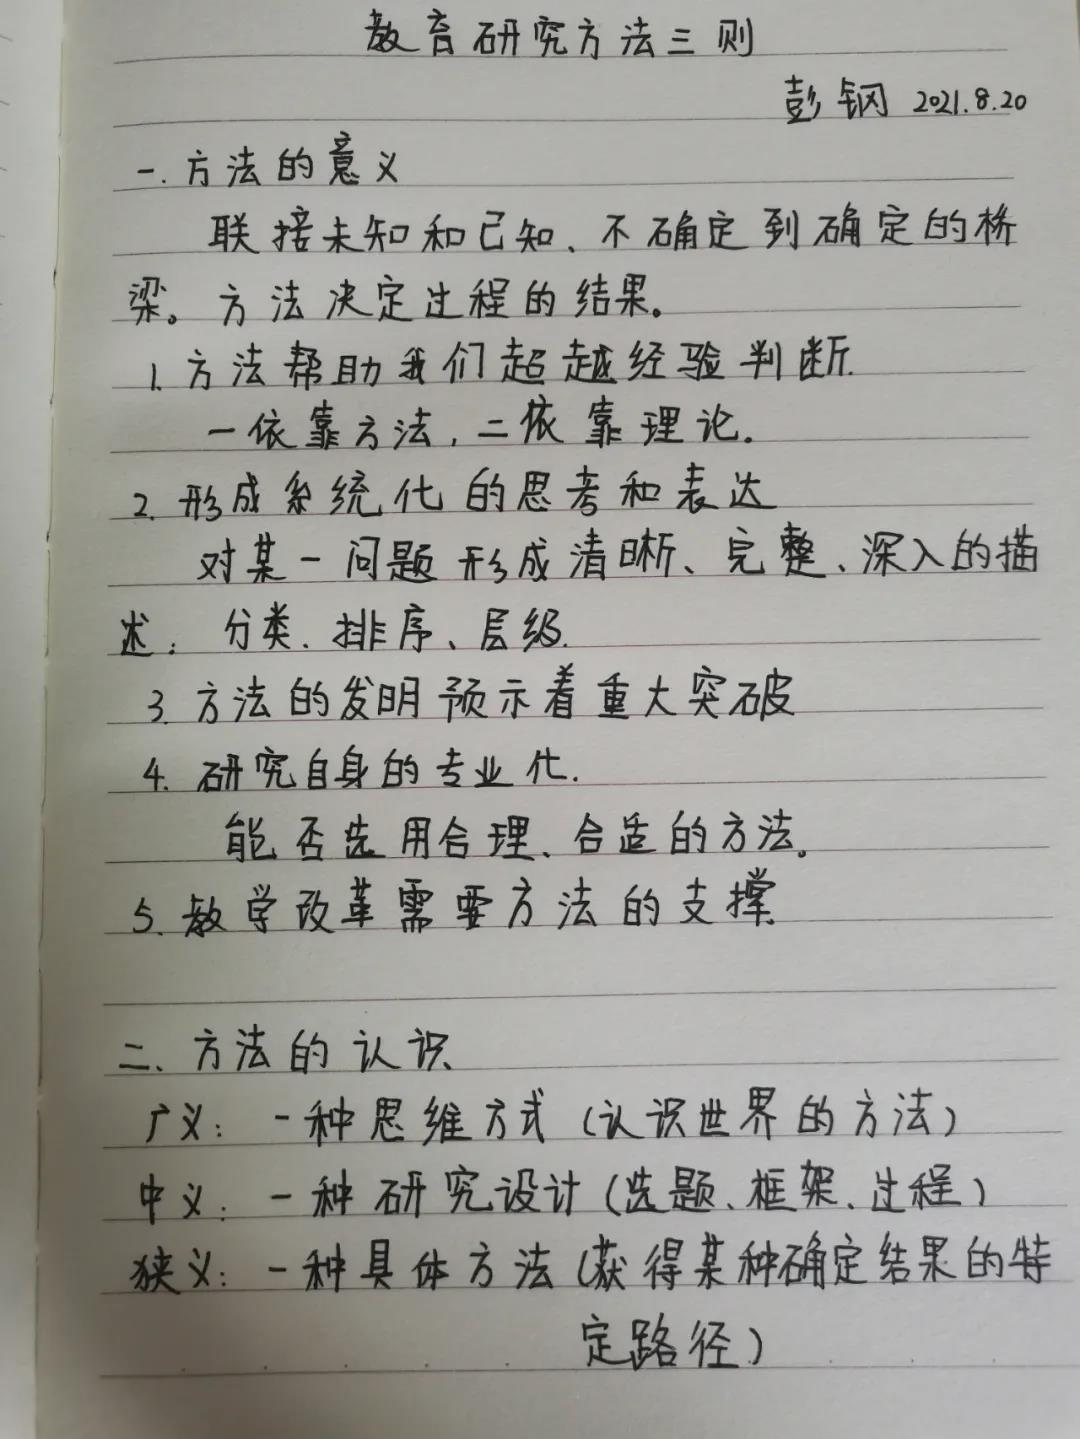 教育研究方法三则
彭钢 2021.8.20
一.方法的意义
联接未知和已知、不确定到确定的桥
梁。方法决定过程的结果。
1.方法帮助我们超越经验判断.
一依靠方法,二依靠理论。
2.形成系统化的思考和表达
对某一问题形成清晰、完整、深入的描
述:分类、排序、层级.
3.方法的发明预示着重大突破
4.研究自身的专业化.
能否选用合理、合适的方法。
5.教学改革需要方法的支撑.
二、方法的认识
广义:一种思维方式(认识世界的方法)
中义:一种研究设计(选题、框架、过程)
狭义:一种具体方法(获得某种确定结果的特
定路径)